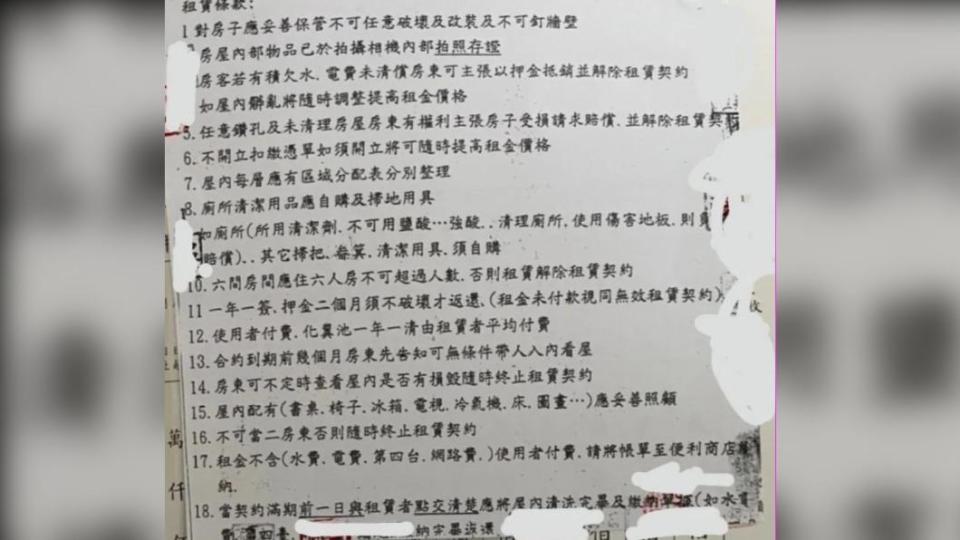 租賃條款:
1 對房子應妥善保管不可任意破壞及改裝及不可釘牆壁
房屋內部物品已於拍攝相機內部拍照存證
房客若有積欠水.電費未清償房東可主張以押金抵銷並解除租賃契約
如屋內髒亂將隨時調整提高租金價格
5.任意鑽孔及未清理房屋房東有權利主張房子受損請求賠償.並解除租賃契
6.不開立扣繳憑單如須開立將可隨時提高租金價格
7.屋內每層應有區域分配表分別整理
8.廁所清潔用品應自購及掃地用具
如廁所(所用清潔劑.不可用鹽酸…強酸..清理廁所.使用傷害地板.則
賠償)..其它掃把.畚箕.清潔用具.須自購
10.六間房間應住六人房不可超過人數.否則租賃解除租賃契約
11 一年一簽.押金二個月須不破壞才返還.(租金未付款視同無效租賃契約)
收
12.使用者付費.化糞池一年一清由租賃者平均付費
13.合約到期前幾個月房東先告知可無條件帶人入內看屋
14.房東可不定時查看屋內是否有損毀隨時終止租賃契約
15.屋內配有(書桌.椅子.冰箱.電視.冷氣機.床.圖畫…)應妥善照顧
16.不可當二房東否則隨時終止租賃契約
萬
17.租金不含(水費.電費.第四台.網路費.)使用者付費.請將帳單至便利商店
納.
仟
18.當契約滿期前一日與租賃者點交清楚應將屋內清洗完畢及繳納單據(如水
納完畢返還